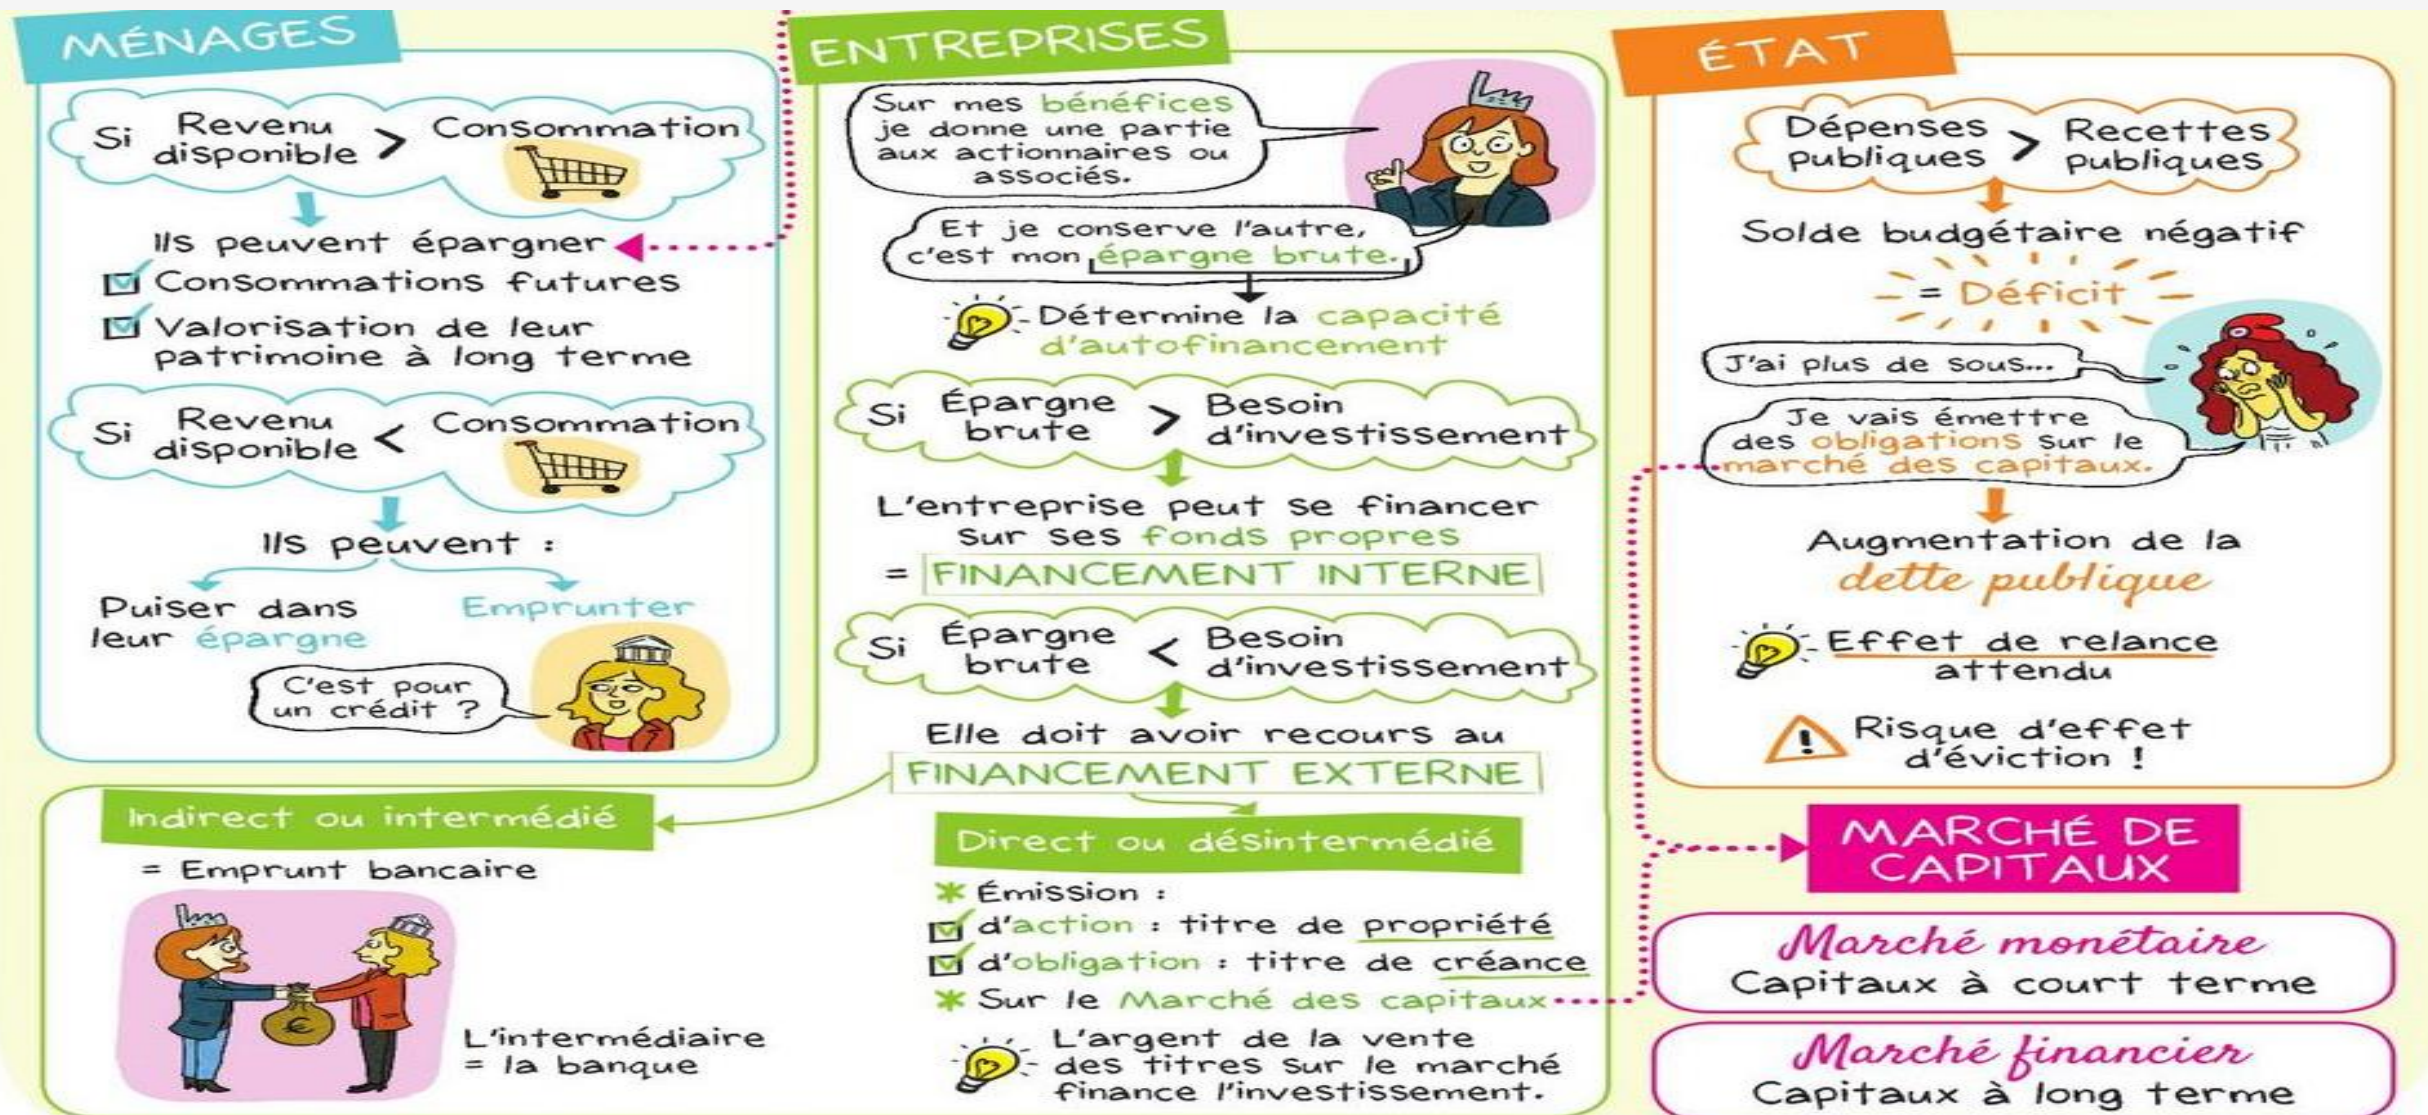 MÉNAGES
Si Revenu disponible > Consommation
Ils peuvent épargner
Consommations futures
Valorisation de leur
patrimoine à long terme
Si Revenu disponible < Consommation
Ils peuvent :
Puiser dans
leur épargne
Emprunter
C'est pour
un crédit ?
ENTREPRISES
Sur mes bénéfices
je donne une partie
aux actionnaires ou
associés.
Et je conserve l'autre,
c'est mon épargne brute.
Détermine la capacité
d'autofinancement
Si Épargne brute > Besoin d'investissement
L'entreprise peut se financer
sur ses fonds propres
= FINANCEMENT INTERNE
Si Épargne brute < Besoin d'investissement
Elle doit avoir recours au
FINANCEMENT EXTERNE
Indirect ou intermédié
= Emprunt bancaire
€
L'intermédiaire
= la banque
Direct ou désintermédié
* Émission :
d'action : titre de propriété
d'obligation : titre de créance
* Sur le Marché des capitaux
L'argent de la vente
des titres sur le marché
finance l'investissement.
ÉTAT
Dépenses publiques > Recettes publiques
Solde budgétaire négatif
= Déficit
J'ai plus de sous...
Je vais émettre
des obligations sur le
marché des capitaux.
Augmentation de la
dette publique
Effet de relance
attendu
! Risque d'effet
d'éviction !
MARCHÉ DE
CAPITAUX
Marché monétaire
Capitaux à court terme
Marché financier
Capitaux à long terme